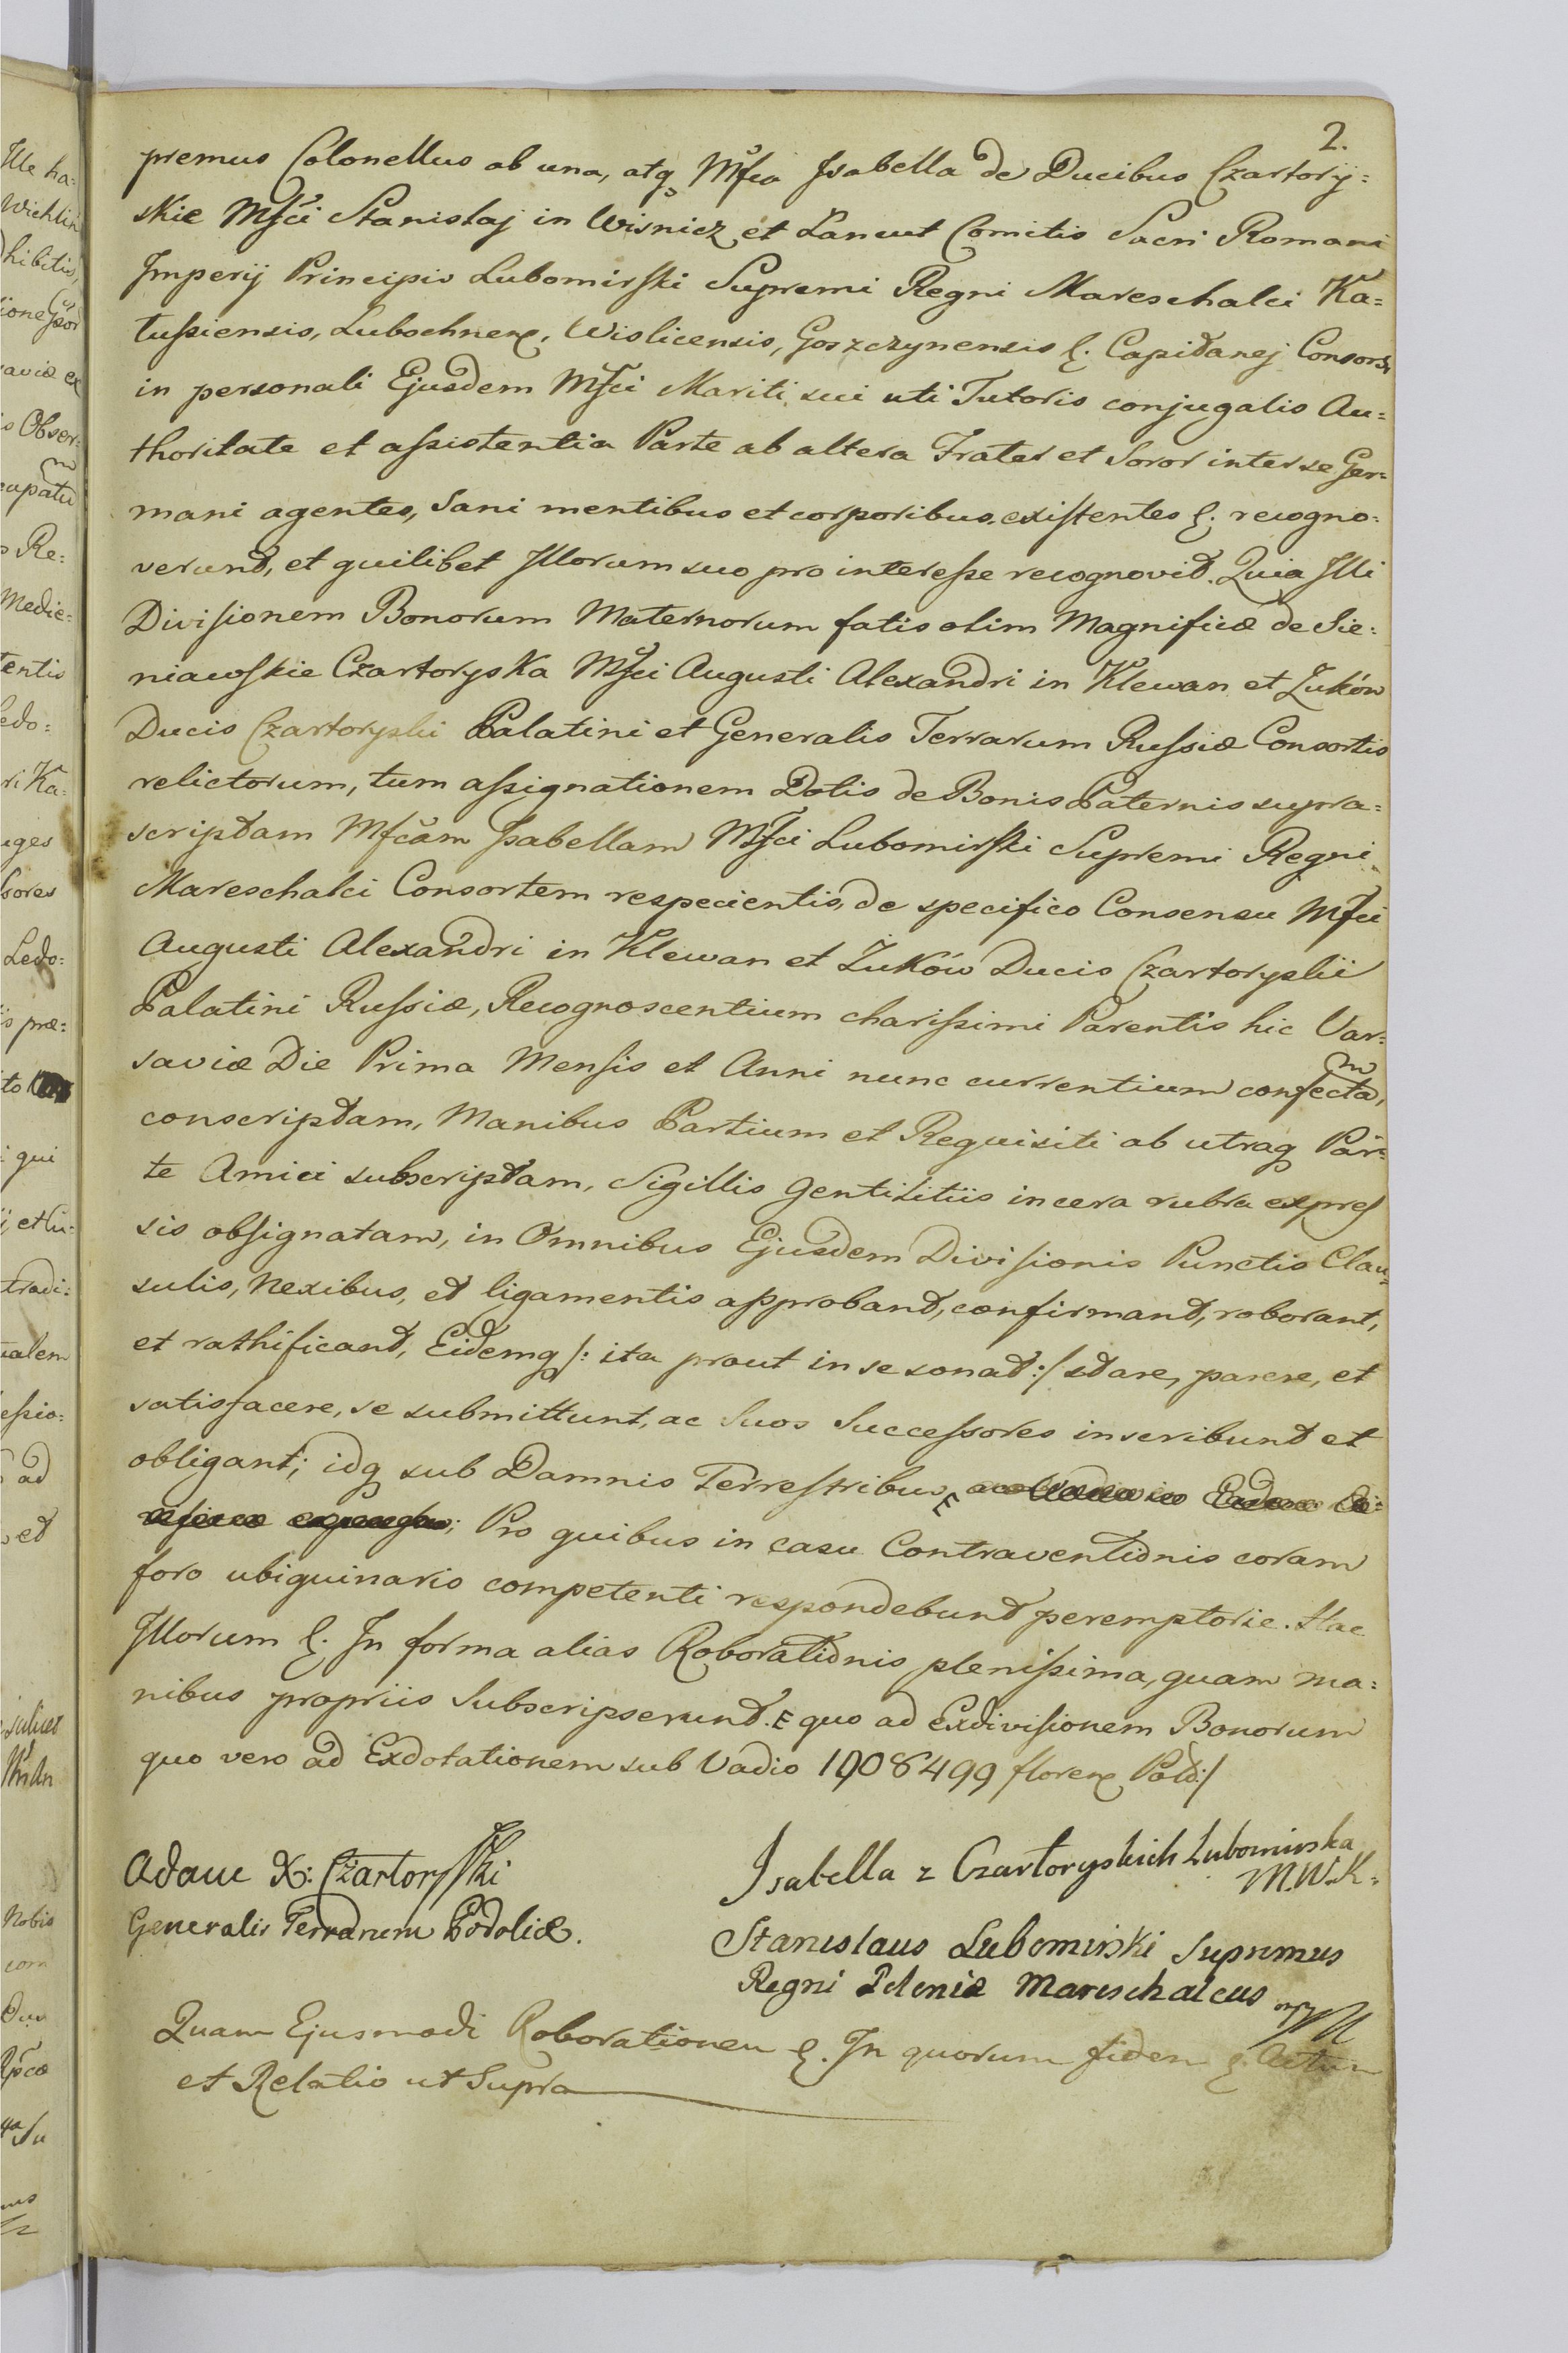 2.
premus Colonellus ab una, atq Mfca Isabella de Ducibus Czartory=
skie Mfci Stanislaj in Wiśnicz et Lancut Comitis Sacri Romani
Imperij Principis Lubomirski Supremi Regni Mareschalci Ka=
tussiensis, Lubochnen, Wislicensis, Goszczynensis &. Capitanej Consors,
in personali Ejusdem Mfci Mariti sui uti Tutoris conjugalis Au=
thoritate et assistentia Parte ab altera Frater et Soror inter se Ger=
mani agentes, Sani mentibus et corporibus existentes &. recogno=
verunt, et quilibet Illorum suo pro interesse recognovit. Quia Illi
Divisionem Bonorum Maternorum fatis olim Magnificæ de Sie=
niawskie Czartoryska Mfci Augusti Alexandri in Klewan et Żuków
Ducis Czartoryski Palatini et Generalis Terrarum Russiæ Consortis
relictorum, tum assignationem Dotis de Bonis Paternis supra=
scriptam Mfcam Isabellam Mfci Lubomirski Supremi Regni
Mareschalci Consortem respicientis, de specifico Consensu Mfci
Augusti Alexandri in Klewan et Żuków Ducis Czartoryskii
Palatini Russiæ, Recognoscentium charissimi Parentis hic Var=
saviæ Die Prima Mensis et Anni nunc currentium confectam,
conscriptam, Manibus Partium et Requisiti ab utraq Par=
te Amici subscriptam, Sigillis Gentilitiis in cera rubra expres
sis obsignatam, in Omnibus Ejusdem Divisionis Punctis Clau=
sulis, Nexibus, et ligamentis approbant, confirmant, roborant,
et rathificant, Eidemq /: ita prout in se sonat :/ stare, parere, et
satisfacere, se submittunt, ac Suos Successores inscribunt et
obligant; idq sub Damnis Terrestribus E
Pro quibus in casu Contraventionis coram
foro ubiquinario competenti respondebunt peremptorie. Hac
Illorum &. In forma alias Roborationis plenissima, quam ma=
nibus propriis Subscripserunt. E quo ad Exdivisionem Bonorum
quo vero ad Exdotationem sub Vadio 1908499 floren Pol:/
Adam X: Czartoryski
Generalis Terrarum Podoliæ.
Isabella z Czartoryskich Lubomirska
M.W.K.
Stanislaus Lubomirski Supremus
Regni Poloniæ Mareschalcus mpp
Quam Ejusmodi Roborationem &. In quorum fidem &. Actum
et Relatio ut Supra